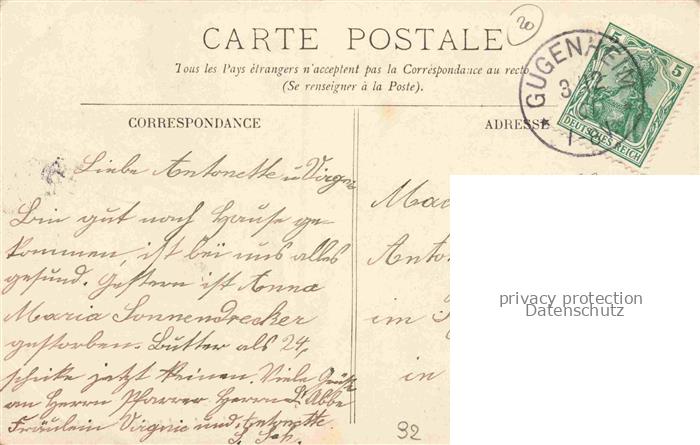 20
CARTE POSTALE
Tous les Pays étrangers n'acceptent pas la Correspondance au recto
(Se renseigner à la Poste).
GUGENHEIM
5 5
DEUTSCHES REICH
CORRESPONDANCE
ADRESSE
Liebe Antonette u Virgin
Bin gut nach Hause ge-
kommen, ist bei uns alles
gesund. Gestern ist Anna
Maria Sonnendrecker
gestorben. Butter als 24,
schicke jetzt keinen. Viele Grüße
an Herrn Pfarrer Herrn L'Abbe
Fräulein Virginie und Antonette
Mad
Anton
im
in
92
privacy protection
Datenschutz